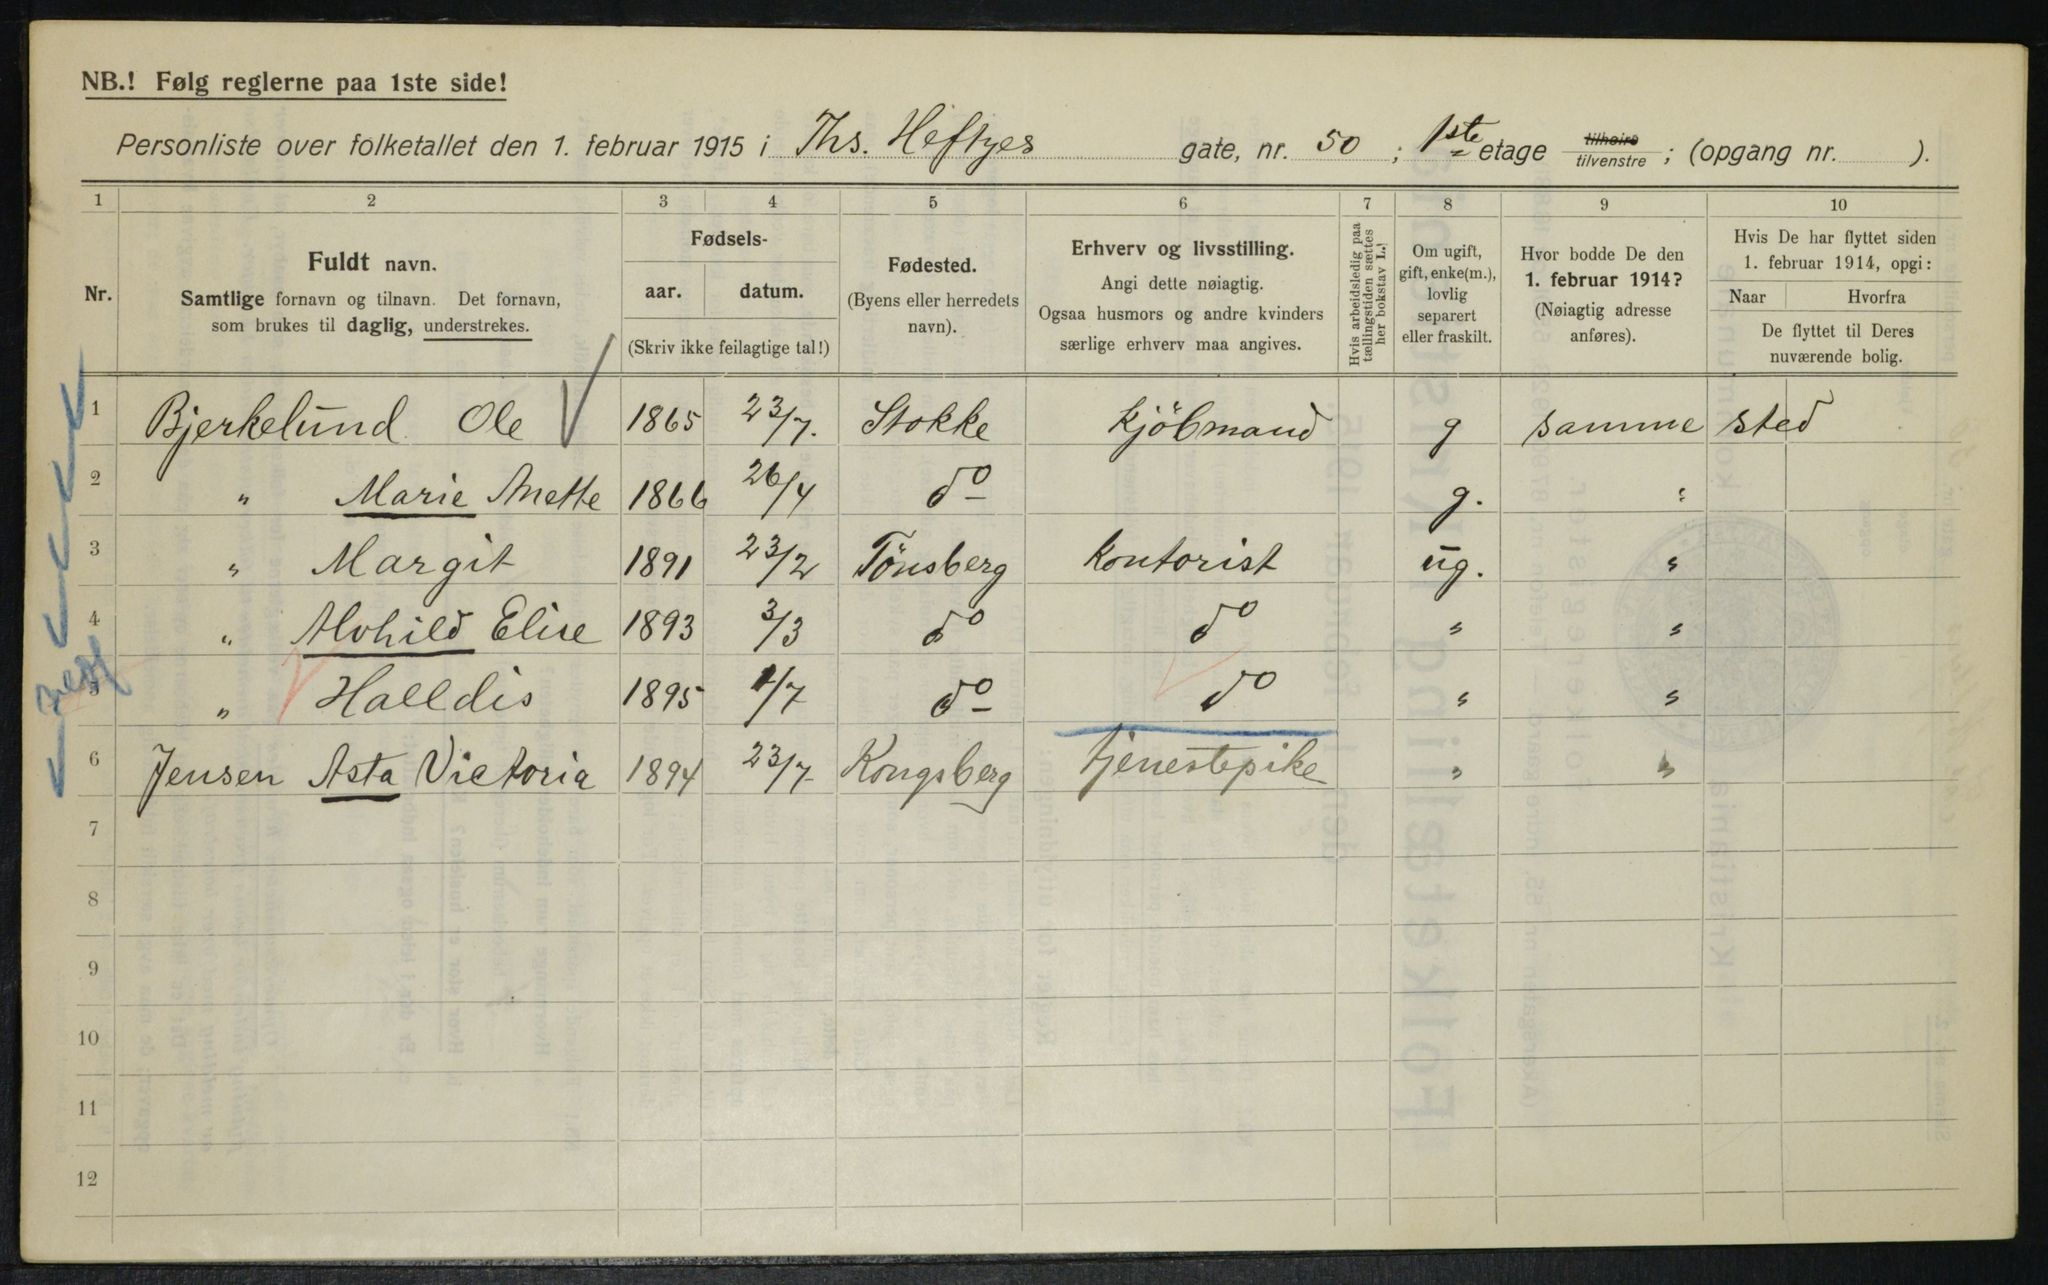 NB.! Følg reglerne paa 1ste side!
Personliste over folketallet den 1. februar 1915 i Ths. Heftyes gate, nr. 50 ; 1ste etage tilhøire tilvenstre ; (opgang nr. ).
1 2 3 4 5 6 7 8 9 10
Nr.
Fuldt navn.
Samtlige fornavn og tilnavn. Det fornavn,
som brukes til daglig, understrekes.
Fødsels-
aar. datum.
(Skriv ikke feilagtige tal!)
Fødested.
(Byens eller herredets
navn).
Erhverv og livsstilling.
Angi dette nøiagtig.
Ogsaa husmors og andre kvinders
særlige erhverv maa angives.
Hvis arbeidsledig paa
tællingstiden sættes
her bokstav L.!
Om ugift,
gift, enke(m.),
lovlig
separert
eller fraskilt.
Hvor bodde De den
1. februar 1914?
(Nøiagtig adresse
anføres).
Hvis De har flyttet siden
1. februar 1914, opgi:
Naar Hvorfra
De flyttet til Deres
nuværende bolig.
1 Bjerkelund Ole 1865 23/7. Stokke Kjöbmand g samme sted
2 " Marie Anette 1866 26/4 do g. "
3 " Margit 1891 23/2 Tönsberg Kontorist ug. "
4 " Alvhild Elise 1893 3/3 do do " "
5 " Halldis 1895 1/7 do do " "
6 Jensen Asta Victoria 1894 23/7 Kongsberg tjenestepike " "
7
8
9
10
11
12